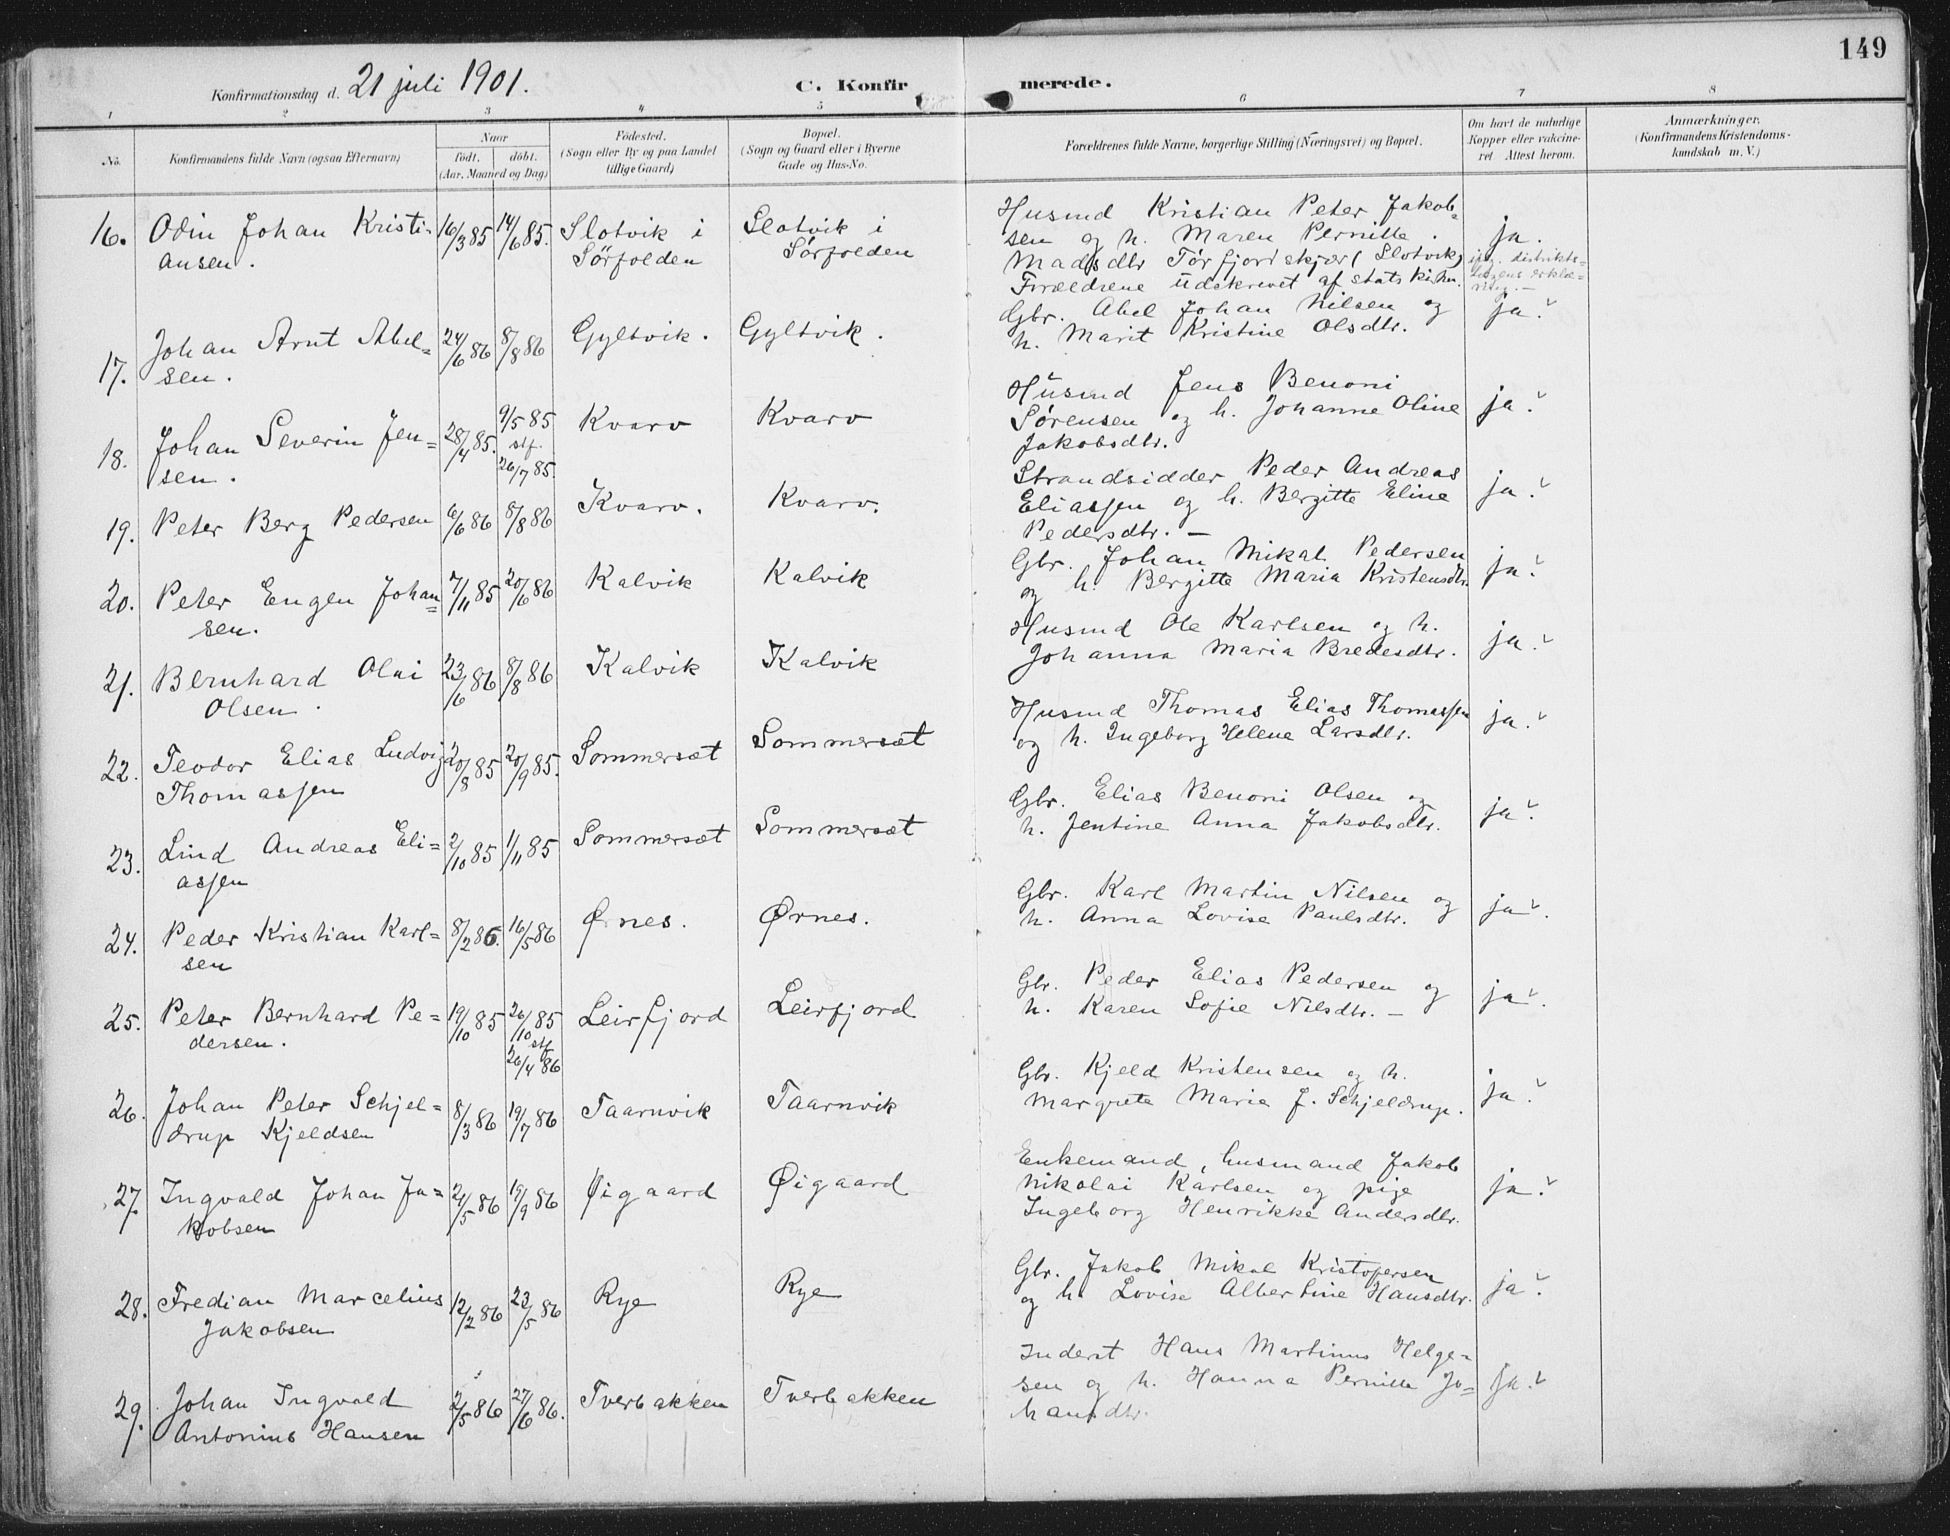 149
Konfirmationsdag d. 21 juli 1901.
C. Konfir merede.
1 2 3 4 5 6 7 8
No.
Konfirmandens fulde Navn (ogsaa Efternavn)
Naar
født. døbt.
(Aar, Maaned og Dag)
Fødested.
(Sogn eller By og paa Landet
tillige Gaard)
Bopæl.
(Sogn og Gaard eller i Byerne
Gade og Hus-No.
Forældrenes fulde Navne, borgerlige Stilling (Næringsvei) og Bopæl.
Om havt de naturlige
Kopper eller vakcine-
ret. Attest herom.
Anmærkninger.
(Konfirmandens Kristendoms-
kundskab m. V.)
16. Odin Johan Kristi- 16/3 85 14/6 85. Slotvik i Slotvik i
ansen. Sørfolden Sørfolden
Husmd Kristian Peter Jakob-
sen og h. Maren Pernille
Madsdtr Tørfjordskjær (Slotvik)
Forældrene udskrevet af statskirken.
ja.
iføg. distrikts-
lægens erklæ-
ring.-
17. Johan Arnt Abel- 24/6 86 8/8 86 Gyltvik. Gyltvik.
sen.
Gbr. Abel Johan Nilsen og
h. Marit Kristine Olsdtr.
ja.
18. Johan Severin Jen- 28/4 85. 9/5 85 Kvarv Kvarv
sen. stf. 26/7 85.
Husmd Jens Benoni
Sørensen og h. Johanne Oline
Jakobsdtr.
ja.
19. Peter Berg Pedersen 6/6 86 8/8 86 Kvarv. Kvarv.
Strandsidder Peder Andreas
Eliassen og h. Bergitte Eline
Pedersdtr. -
ja.
20. Peter Engen Johan= 7/11 85 20/6 86 Kalvik Kalvik
sen.
Gbr. Johan Mikal Pedersen
og h. Bergitte Maria Kristensdtr.
ja.
21. Bernhard Olai 23/6 86 8/8 86 Kalvik Kalvik
Olsen.
Husmd Ole Karlsen og h.
Johanna Maria Bredesdtr.
ja.
22. Teodor Elias Ludvig 20/8 85 20/9 85. Sommersæt Sommersæt
Thomassen
Husmd Thomas Elias Thomassen
og h. Ingeborg Helene Larsdtr.
ja.
23. Lind Andreas Eli= 2/10 85 1/11 85 Sommersæt Sommersæt
assen
Gbr. Elias Benoni Olsen og
h. Jentine Anna Jakobsdtr.
ja.
24. Peder Kristian Karl= 8/2 86. 16/5 86 Ørnes. Ørnes.
sen
Gbr. Karl Martin Nilsen og
h. Anna Lovise Paulsdtr.
ja.
25. Peter Bernhard Pe= 19/10 85 26/10 85 Leirfjord Leirfjord
dersen. stf 26/4 86
Gbr. Peder Elias Pedersen og
h. Karen Sofie Nilsdtr. -
ja.
26. Johan Peter Schjel= 8/3 86 19/7 86 Taarnvik Taarnvik
drup Kjeldsen
Gbr. Kjeld Kristensen og h.
Margrete Maria J. Schjeldrup.
ja.
27. Ingvald Johan Ja= 21/5 86 19/9 86 Øigaard Øigaard
kobsen
Enkemand, husmand Jakob
Nikolai Karlsen og pige
Ingeborg Henrikke Andersdtr.
ja.
28. Fredian Marcelius 12/2 86 23/5 86 Rye Rye
Jakobsen
Gbr. Jakob Mikal Kristofersen
og h. Lovise Albertine Hansdtr.
ja.
29. Johan Ingvald 2/5 86 27/6 86. Tverbakken Tverbakken
Antonius Hansen
Inderst Hans Martinus Helge=
sen og h. Hanna Pernille Jo=
hansdtr.
ja.